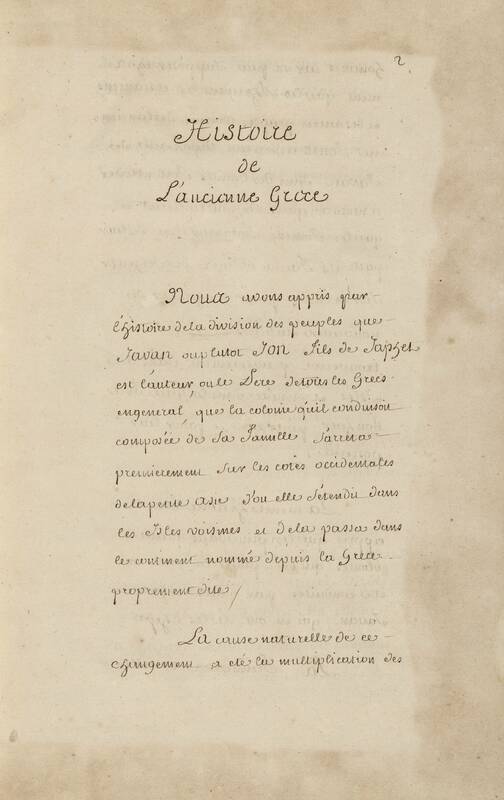 2
Histoire
de
L'ancienne Grece
Nous avons appris par
l'histoire de la division des peuples que
Javan ou plutot Jon fils de Japhet
est l'auteur ou le Pere de tous les Grecs
en general, que la colonie qu'il conduisoit
composée de sa famille s'arreta
premierement sur les cotes occidentales
de la petite asie d'ou elle s'étendit dans
les Isles voisines et de la passa dans
le continent nommé depuis la Grece
proprement dite /
La cause naturelle de ce
changement a eté la multiplication des